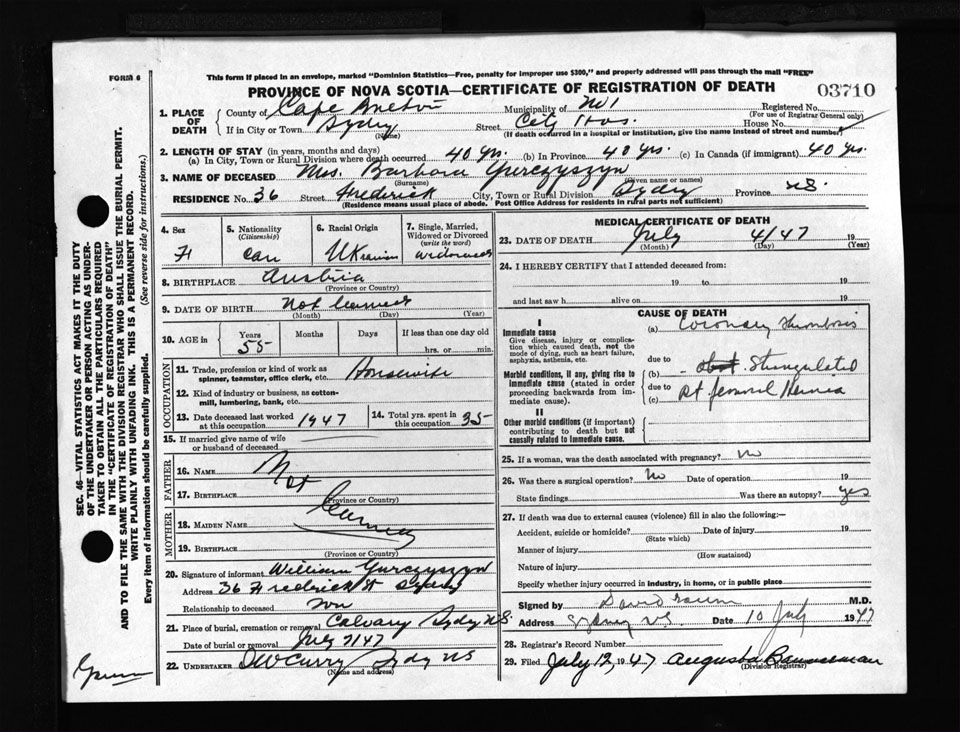 FORM 6
This form if placed in an envelope, marked "Dominion Statistics—Free, penalty for improper use $300," and properly addressed will pass through the mail "FREE"
PROVINCE OF NOVA SCOTIA—CERTIFICATE OF REGISTRATION OF DEATH 03710
1. PLACE OF DEATH
County of Cape Breton Municipality of No 1 Registered No.
(For use of Registrar General only)
If in City or Town Sydney Street City Hos. House No.
(Name) (If death occurred in a hospital or institution, give the name instead of street and number)
2. LENGTH OF STAY (in years, months and days)
(a) In City, Town or Rural Division where death occurred 40 yrs. (b) In Province 40 yrs. (c) In Canada (if immigrant) 40 yrs.
3. NAME OF DECEASED Mrs. Barbara Yurczyszyn
(Surname) (Given name or names)
RESIDENCE No. 36 Street Frederick City, Town or Rural Division Sydney Province N.S.
(Residence means usual place of abode. Post Office Address for residents in rural parts not sufficient)
4. Sex F
5. Nationality (Citizenship) Can
6. Racial Origin Ukranian
7. Single, Married, Widowed or Divorced (write the word) Widowed
8. BIRTHPLACE Austria
(Province or Country)
9. DATE OF BIRTH Not
(Month) (Day) (Year)
10. AGE in Years 55 Months Days If less than one day old
hrs. or min.
OCCUPATION
11. Trade, profession or kind of work as spinner, teamster, office clerk, etc. Housewife
12. Kind of industry or business, as cotton-mill, lumbering, bank, etc.
13. Date deceased last worked at this occupation 1947
14. Total yrs. spent in this occupation 35
15. If married give name of wife or husband of deceased
FATHER
16. NAME Not
17. BIRTHPLACE
(Province or Country)
MOTHER
18. MAIDEN NAME
19. BIRTHPLACE
(Province or Country)
20. Signature of informant William Yurczyszyn
Address 36 Frederick St Sydney
Relationship to deceased Son
21. Place of burial, cremation or removal Calvary Sydney N.S.
Date of burial or removal July 7/47
22. UNDERTAKER D W Curry Sydney NS
(Name and address)
MEDICAL CERTIFICATE OF DEATH
23. DATE OF DEATH July 4/47 19
(Month) (Day) (Year)
24. I HEREBY CERTIFY that I attended deceased from:
19 to 19
and last saw h alive on 19
CAUSE OF DEATH
I
Immediate cause
Give disease, injury or complication which caused death, not the mode of dying, such as heart failure, asphyxia, asthenia, etc.
(a) Coronary thrombosis
due to
Morbid conditions, if any, giving rise to immediate cause (stated in order proceeding backwards from immediate cause).
(b) Strangulated
due to
(c) Rt femoral Hernia
II
Other morbid conditions (if important) contributing to death but not causally related to immediate cause.
25. If a woman, was the death associated with pregnancy? No
26. Was there a surgical operation? No Date of operation 19
State findings Was there an autopsy? yes
27. If death was due to external causes (violence) fill in also the following:—
Accident, suicide or homicide? Date of injury 19
(State which)
Manner of injury
(How sustained)
Nature of injury
Specify whether injury occurred in industry, in home, or in public place
Signed by David M.D.
Address Sydney N.S. Date 10 July 1947
28. Registrar's Record Number
29. Filed July 12, 1947 Augusta Bannerman
(Division Registrar)
SEC. 46—VITAL STATISTICS ACT MAKES IT THE DUTY OF THE UNDERTAKER OR PERSON ACTING AS UNDERTAKER TO OBTAIN ALL THE PARTICULARS REQUIRED IN THE "CERTIFICATE OF REGISTRATION OF DEATH" AND TO FILE THE SAME WITH THE DIVISION REGISTRAR WHO SHALL ISSUE THE BURIAL PERMIT.
WRITE PLAINLY WITH UNFADING INK. THIS IS A PERMANENT RECORD.
Every item of information should be carefully supplied. (See reverse side for instructions.)